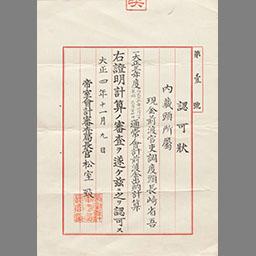 第壹號
認可狀
内蔵頭所屬
現金前渡官吏調度頭長崎省吾
一大正三年度
通常會計前渡金出納計算
右證明計算ノ審査ヲ遂ケ茲ニ之ヲ認可ス
大正四年十一月九日
帝室會計審査局長官松室致